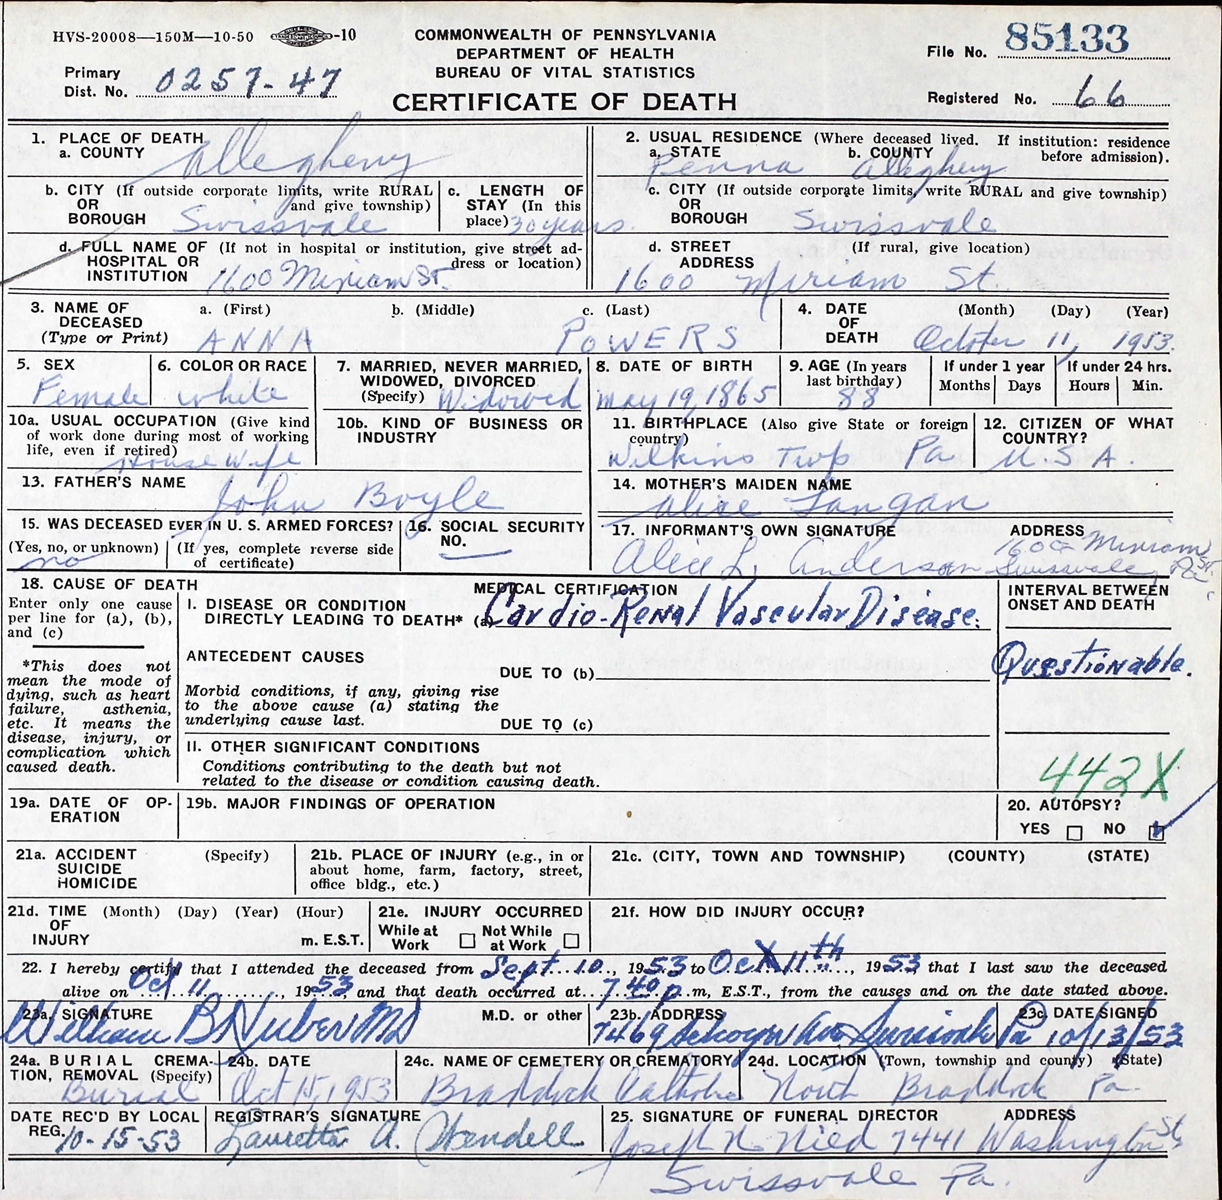 HVS-20008—150M—10-50 -10
COMMONWEALTH OF PENNSYLVANIA
DEPARTMENT OF HEALTH
BUREAU OF VITAL STATISTICS
CERTIFICATE OF DEATH
File No. 85133
Primary
Dist. No. 0257-47
Registered No. 66
1. PLACE OF DEATH
a. COUNTY Allegheny
2. USUAL RESIDENCE (Where deceased lived. If institution: residence
before admission).
a. STATE Penna b. COUNTY Allegheny
b. CITY (If outside corporate limits, write RURAL
OR and give township)
BOROUGH Swissvale
c. LENGTH OF
STAY (In this
place) 30 years.
c. CITY (If outside corporate limits, write RURAL and give township)
OR
BOROUGH Swissvale
d. FULL NAME OF (If not in hospital or institution, give street ad-
HOSPITAL OR dress or location)
INSTITUTION 1600 Miriam St.
d. STREET (If rural, give location)
ADDRESS 1600 Miriam St.
3. NAME OF
DECEASED
(Type or Print)
a. (First) b. (Middle) c. (Last)
ANNA POWERS
4. DATE
OF
DEATH
(Month) (Day) (Year)
October 11, 1953.
5. SEX
Female
6. COLOR OR RACE
white
7. MARRIED, NEVER MARRIED,
WIDOWED, DIVORCED
(Specify) Widowed
8. DATE OF BIRTH
May 19, 1865
9. AGE (In years
last birthday)
88
If under 1 year
Months Days
If under 24 hrs.
Hours Min.
10a. USUAL OCCUPATION (Give kind
of work done during most of working
life, even if retired)
House Wife
10b. KIND OF BUSINESS OR
INDUSTRY
11. BIRTHPLACE (Also give State or foreign
country)
Wilkins Twp Pa
12. CITIZEN OF WHAT
COUNTRY?
U.S.A.
13. FATHER'S NAME
John Boyle
14. MOTHER'S MAIDEN NAME
Alice Langan
15. WAS DECEASED EVER IN U. S. ARMED FORCES?
(Yes, no, or unknown) (If yes, complete reverse side
of certificate)
no
16. SOCIAL SECURITY
NO.
17. INFORMANT'S OWN SIGNATURE ADDRESS
Alice L. Anderson 1600 Miriam St.
Swissvale, Pa.
18. CAUSE OF DEATH
Enter only one cause
per line for (a), (b),
and (c)
*This does not
mean the mode of
dying, such as heart
failure, asthenia,
etc. It means the
disease, injury, or
complication which
caused death.
MEDICAL CERTIFICATION
I. DISEASE OR CONDITION
DIRECTLY LEADING TO DEATH* (a) Cardio-Renal Vascular Disease.
ANTECEDENT CAUSES
DUE TO (b)
Morbid conditions, if any, giving rise
to the above cause (a) stating the
underlying cause last.
DUE TO (c)
II. OTHER SIGNIFICANT CONDITIONS
Conditions contributing to the death but not
related to the disease or condition causing death.
INTERVAL BETWEEN
ONSET AND DEATH
Questionable.
442X
19a. DATE OF OP-
ERATION
19b. MAJOR FINDINGS OF OPERATION
20. AUTOPSY?
YES NO
21a. ACCIDENT (Specify)
SUICIDE
HOMICIDE
21b. PLACE OF INJURY (e.g., in or
about home, farm, factory, street,
office bldg., etc.)
21c. (CITY, TOWN AND TOWNSHIP) (COUNTY) (STATE)
21d. TIME (Month) (Day) (Year) (Hour)
OF
INJURY m. E.S.T.
21e. INJURY OCCURRED
While at Not While
Work at Work
21f. HOW DID INJURY OCCUR?
22. I hereby certify that I attended the deceased from Sept. 10, 1953 to Oct 11th, 1953 that I last saw the deceased
alive on Oct 11, 1953 and that death occurred at 7:40 p.m, E.S.T., from the causes and on the date stated above.
23a. SIGNATURE M.D. or other
William B. Huber MD
23b. ADDRESS
7469 Ave Swissvale Pa
23c. DATE SIGNED
10/13/53
24a. BURIAL CREMA-
TION, REMOVAL (Specify)
Burial
24b. DATE
Oct 15, 1953
24c. NAME OF CEMETERY OR CREMATORY
Braddock Catholic
24d. LOCATION (Town, township and county) (State)
North Braddock Pa.
DATE REC'D BY LOCAL
REG. 10-15-53
REGISTRAR'S SIGNATURE
Lauretta A. Wendell
25. SIGNATURE OF FUNERAL DIRECTOR ADDRESS
Joseph N. Nied 7441 Washington St.
Swissvale Pa.